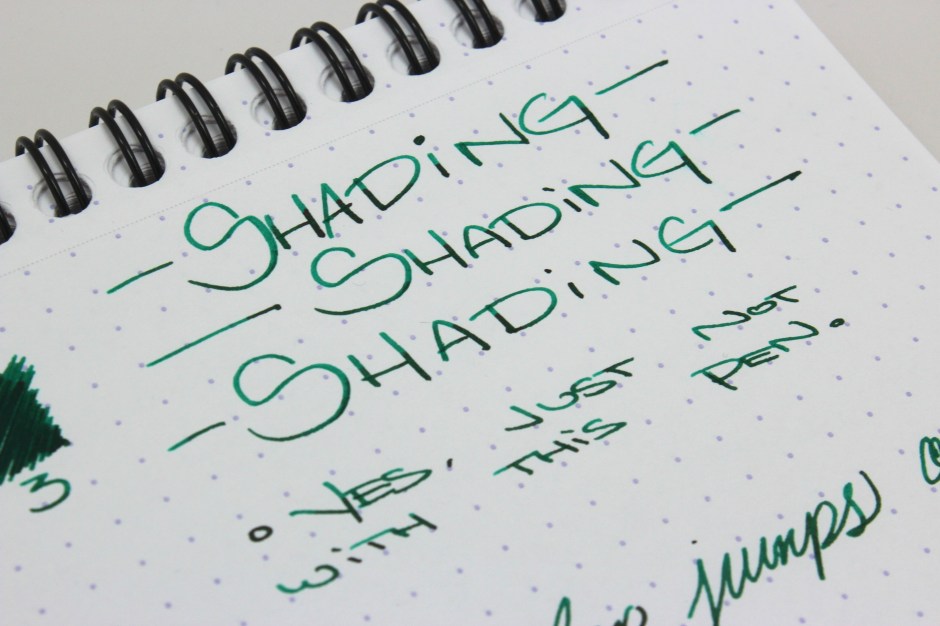 - SHADiNG -
- SHADiNG -
- SHADiNG -
3
° YES. JUST NOT
WiTH THiS PEN.
jumps